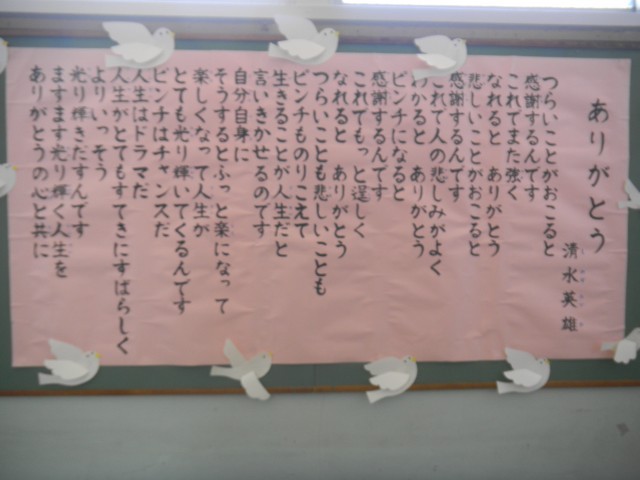 ありがとう
清水英雄
つらいことがおこると
感謝するんです
これでまた強く
なれると ありがとう
悲しいことがおこると
感謝するんです
これで人の悲しみがよく
わかると ありがとう
ピンチになると
感謝するんです
これでもっと逞しく
なれると ありがとう
つらいことも悲しいことも
ピンチものりこえて
生きることが人生だと
言いきかせるのです
自分自身に
そうするとふっと楽になって
楽しくなって人生が
とても光り輝いてくるんです
ピンチはチャンスだ
人生はドラマだ
人生がとてもすてきにすばらしく
よりいっそう
光り輝きだすんです
ますます光り輝く人生を
ありがとうの心と共に